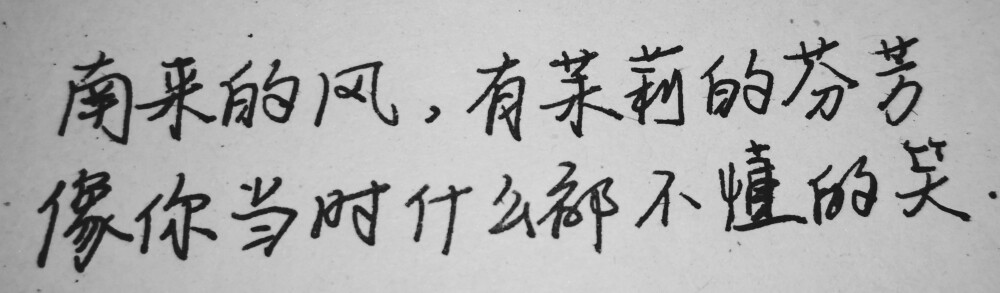 南来的风，有茉莉的芬芳
像你当时什么都不懂的笑.